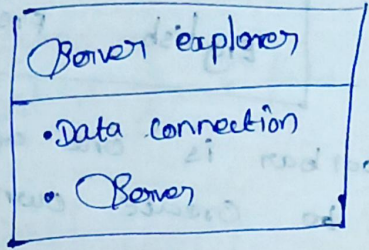 Server explorer
• Data connection
• Server